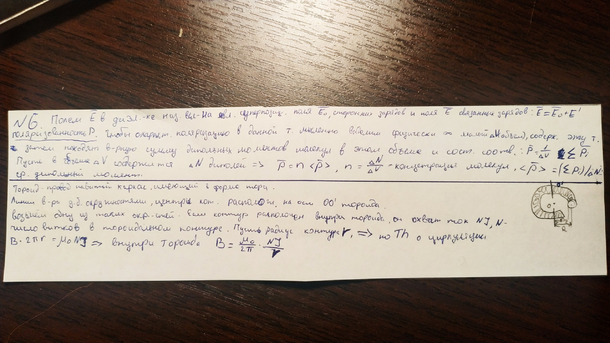 N6. Полем E в диэл-ке наз вел-на явл. суперпозиц. поля E₀ сторонних зарядов и поля E' связанных зарядов: E = E₀ + E'
Поляризованность P. Чтобы опр поляризацию в данной т. мысленно выделим физически ∞ малый объём, содерж. эту т.
затем находят в-рную сумму дипольных моментов молекул в этом объёме и сост. соотв.: P = 1/ΔV Σ Pi
Пусть в объёме ΔV содержится ΔN диполей => P = n <p>, n = ΔN/ΔV - концентрация молекул, <p> = (Σ Pi)/ΔN -
ср. дипольный момент.
Тороид. провод навитый каркас, имеющий форму тора.
Линии B должны д.б. окружностями, центры кот. располож. на оси OO' тороида.
возьмём одну из таких окр-стей. Если контур расположен внутри тороида, он охват. ток NI, N-
число витков в тороидальном контуре. Пусть радиус контура r, => по Th о циркуляции
B·2πr = μ₀NI => внутри тороида B = μ₀/2π · NI/r
O'